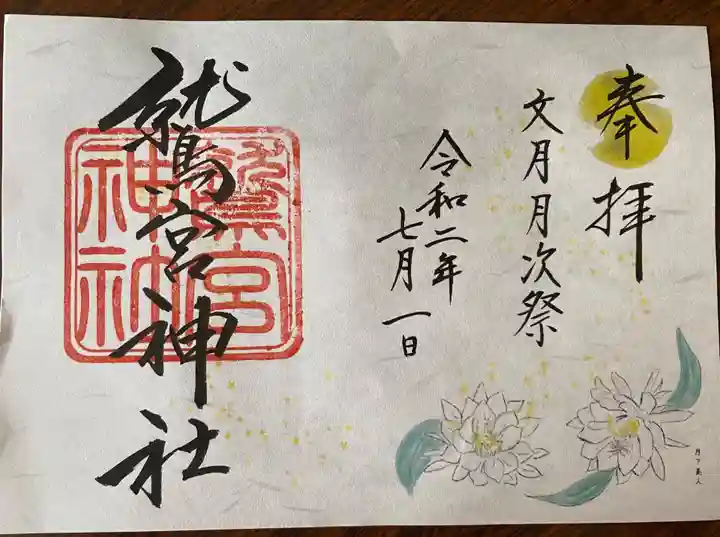 奉拝
文月月次祭
令和二年
七月一日
鷲宮神社
鷲宮神社
月下美人